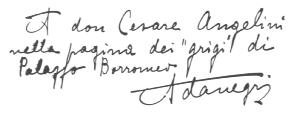 A don Cesare Angelini
nella pagina dei "grigi" di
Palazzo Borromeo
Adanegri